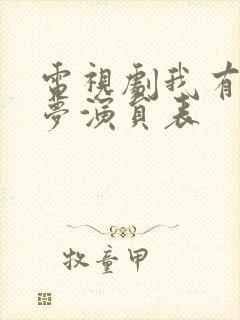 電視劇我有
夢演員表
牧童甲